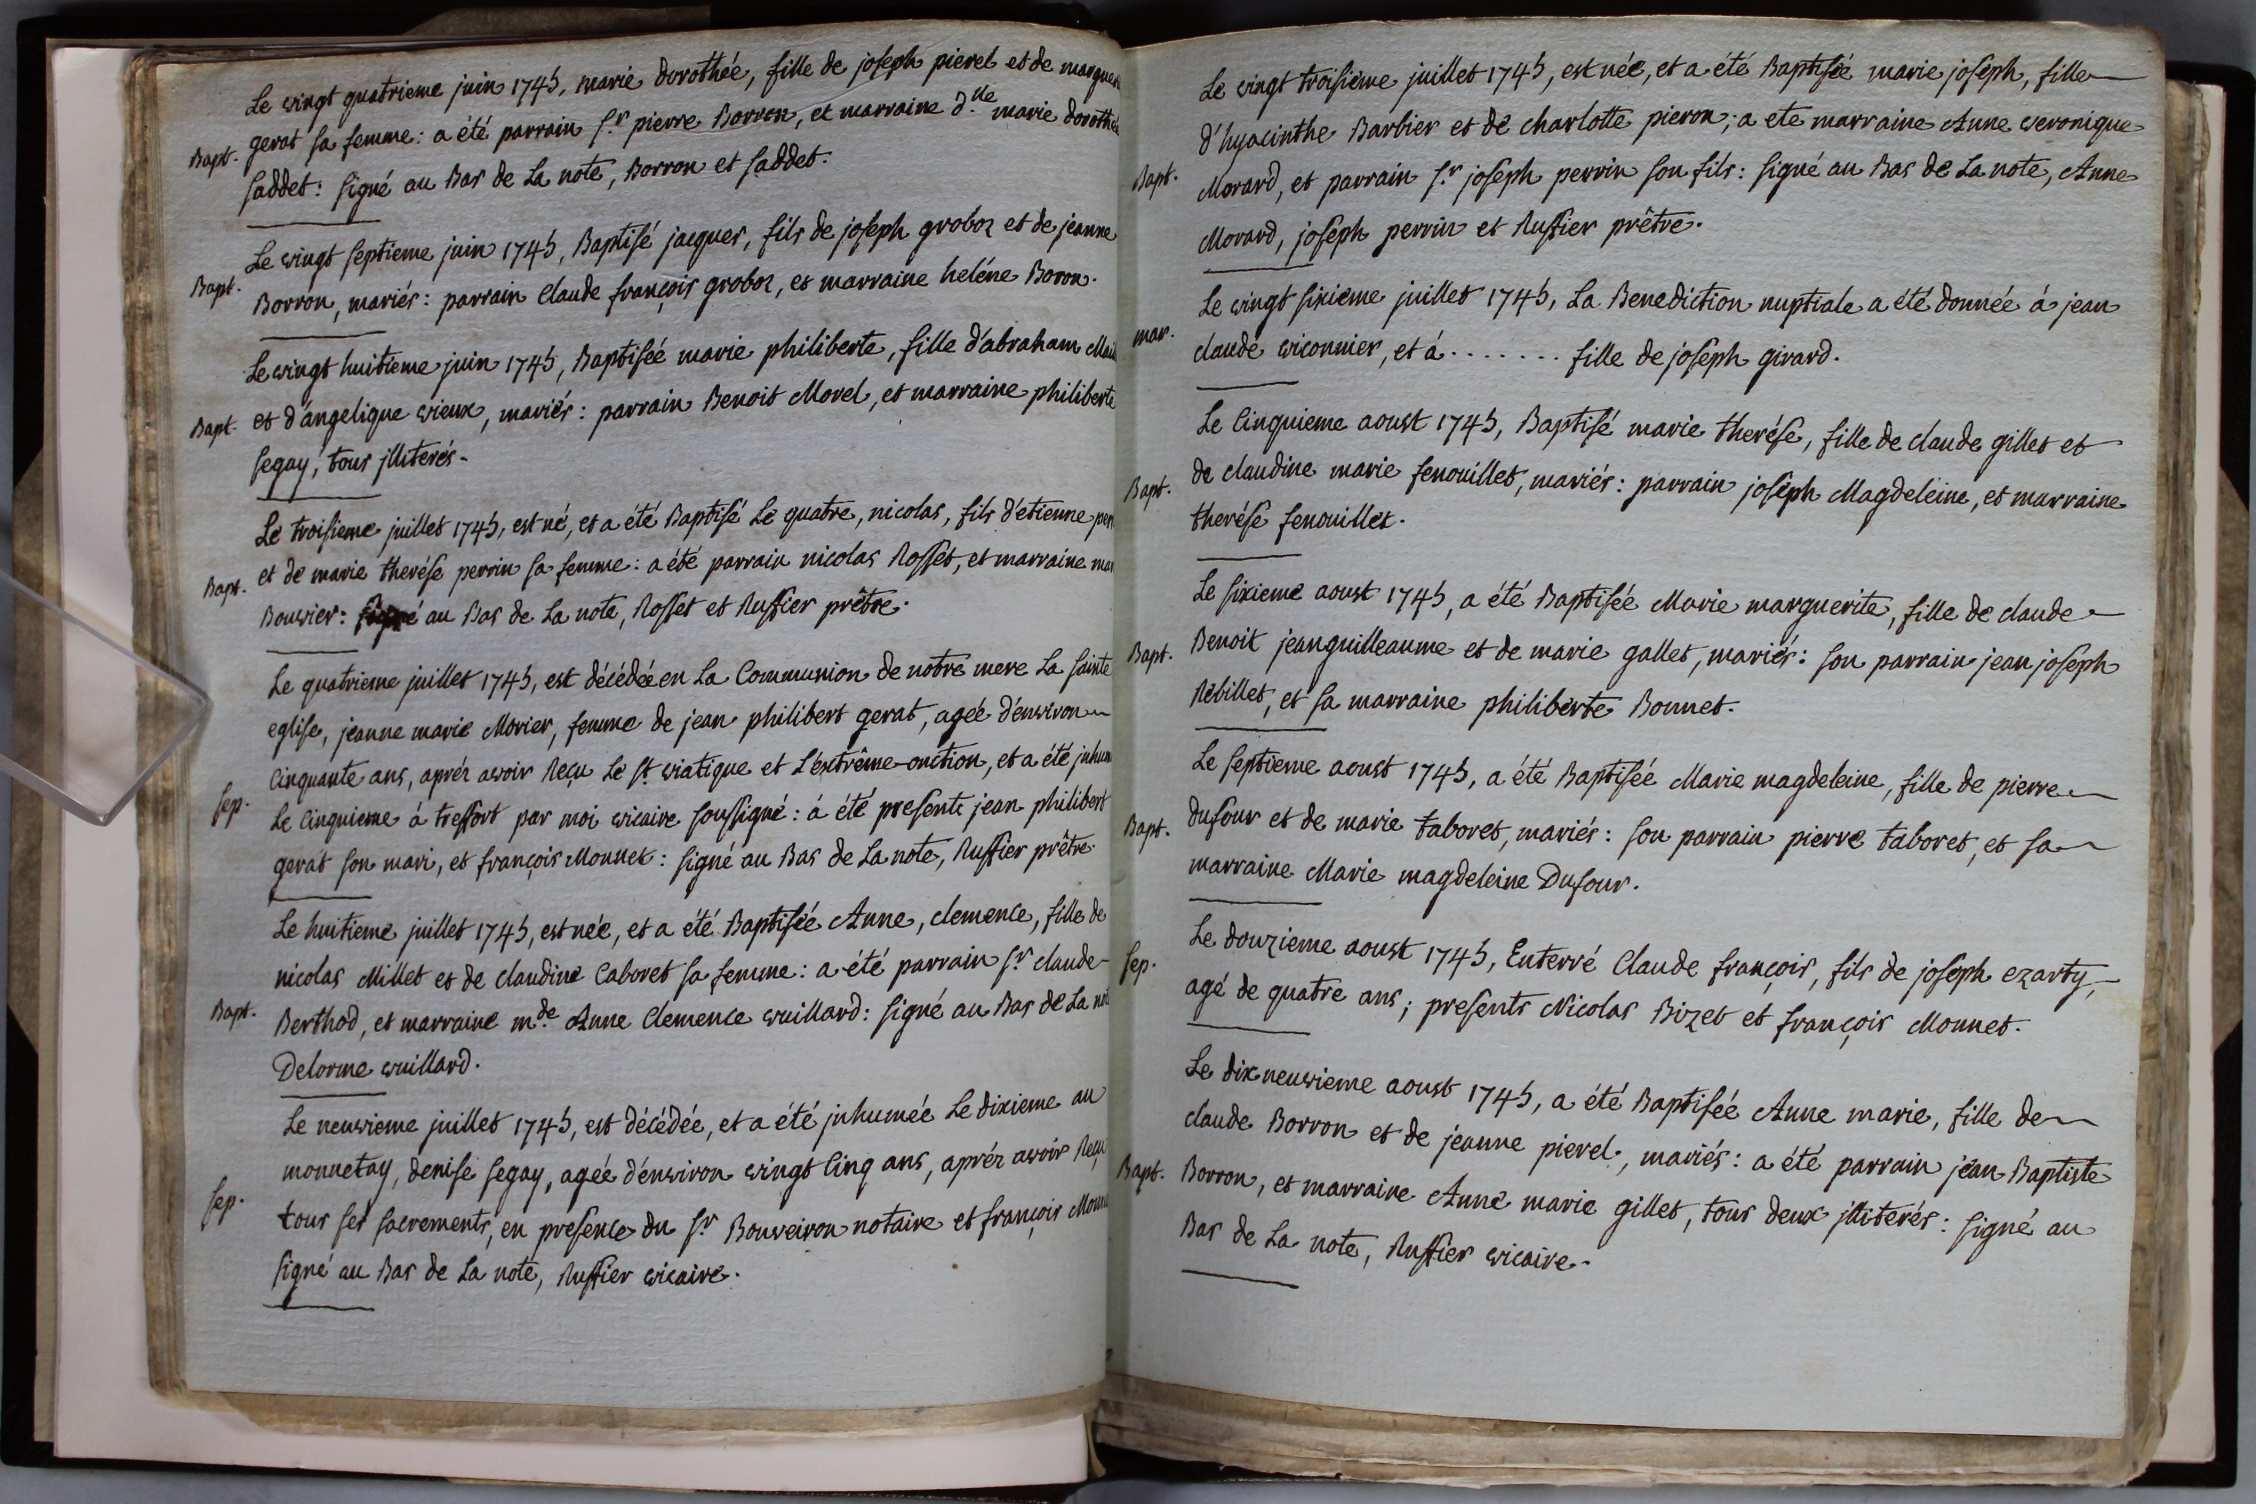 Le vingt quatrieme juin 1745, marie dorothée, fille de joseph pierel et de
Bapt. gerat sa femme: a été parrain s.r pierre Borron, et marraine d.lle marie dorothée
saddet: signé au Bas de La note, Borron et saddet.
Le vingt septieme juin 1745, Baptisé jacques, fils de joseph groboz et de jeanne
Bapt. Borron, mariés: parrain Claude françois groboz, et marraine heléne Boron.
Le vingt huitieme juin 1745, Baptisée marie philiberte, fille d'abraham
Bapt. et d'angelique vieux, mariés: parrain Benoit Morel, et marraine philiberte
segay, tous jlliterés.
Le troisieme juillet 1745, est né, et a été Baptisé Le quatre, nicolas, fils d'etienne
Bapt. et de marie therése perrin sa femme: a été parrain nicolas Rosset, et marraine
Bouvier: signé au Bas de La note, Rosset et Ruffier prêtre.
Le quatrieme juillet 1745, est décédée en La Communion de notre mere La sainte
eglise, jeanne marie Morier, femme de jean philibert gerat, agée d'environ
Cinquante ans, aprés avoir Reçu Le s.t viatique et L'extrême-onction, et a été
sep. Le Cinquieme á treffort par moi vicaire soussigné: á été presents jean philibert
gerat son mari, et françois Monnet: signé au Bas de La note, Ruffier prêtre
Le huitieme juillet 1745, est née, et a été Baptisée Anne, clemence, fille de
nicolas Millet et de claudine Caboret sa femme: a été parrain s.r claude
Bapt. Berthod, et marraine m.de Anne Clemence vuillard: signé au Bas de La note
Delorme vuillard.
Le neuvieme juillet 1745, est décédée, et a été jnhumée Le dixieme au
monnetay, denise segay, agée d'environ vingt Cinq ans, aprés avoir Reçu
sep. tous ses sacrements, en presence du s.r Bouveiron notaire et françois
signé au Bas de La note, Ruffier vicaire.
Le vingt troisieme juillet 1745, est née, et a été Baptisée marie joseph, fille
d'hyacinthe Barbier et de charlotte pieron; a ete marraine Anne veronique
Bapt. Morard, et parrain s.r joseph perrin son fils: signé au Bas de La note, Anne
Morard, joseph perrin et Ruffier prêtre.
Le vingt sixieme juillet 1745, La Benediction nuptiale a été donnée á jean
mar. claude viconnier, et á ....... fille de joseph girard.
Le Cinquieme aoust 1745, Baptisé marie therése, fille de claude gillet et
Bapt. de claudine marie fenouillet, mariés: parrain joseph Magdeleine, et marraine
therése fenouillet.
Le sixieme aoust 1745, a été Baptisée Marie marguerite, fille de claude
Bapt. Benoit jeanguilleaume et de marie gallet, mariés: son parrain jean joseph
Rebillet, et sa marraine philiberte Bonnet.
Le septieme aoust 1745, a été Baptisée Marie magdeleine, fille de pierre
Bapt. Dufour et de marie taboret, mariés: son parrain pierre taboret, et sa
marraine Marie magdeleine Dufour.
Le douzieme aoust 1745, Enterré Claude françois, fils de joseph ezarty,
sep. agé de quatre ans; presents Nicolas Bizet et françois Monnet.
Le dix neuvieme aoust 1745, a été Baptisée Anne marie, fille de
claude Borron et de jeanne pierel, mariés: a été parrain jean Baptiste
Bapt. Borron, et marraine Anne marie gillet, tous deux jlliterés: signé au
Bas de La note, Ruffier vicaire.